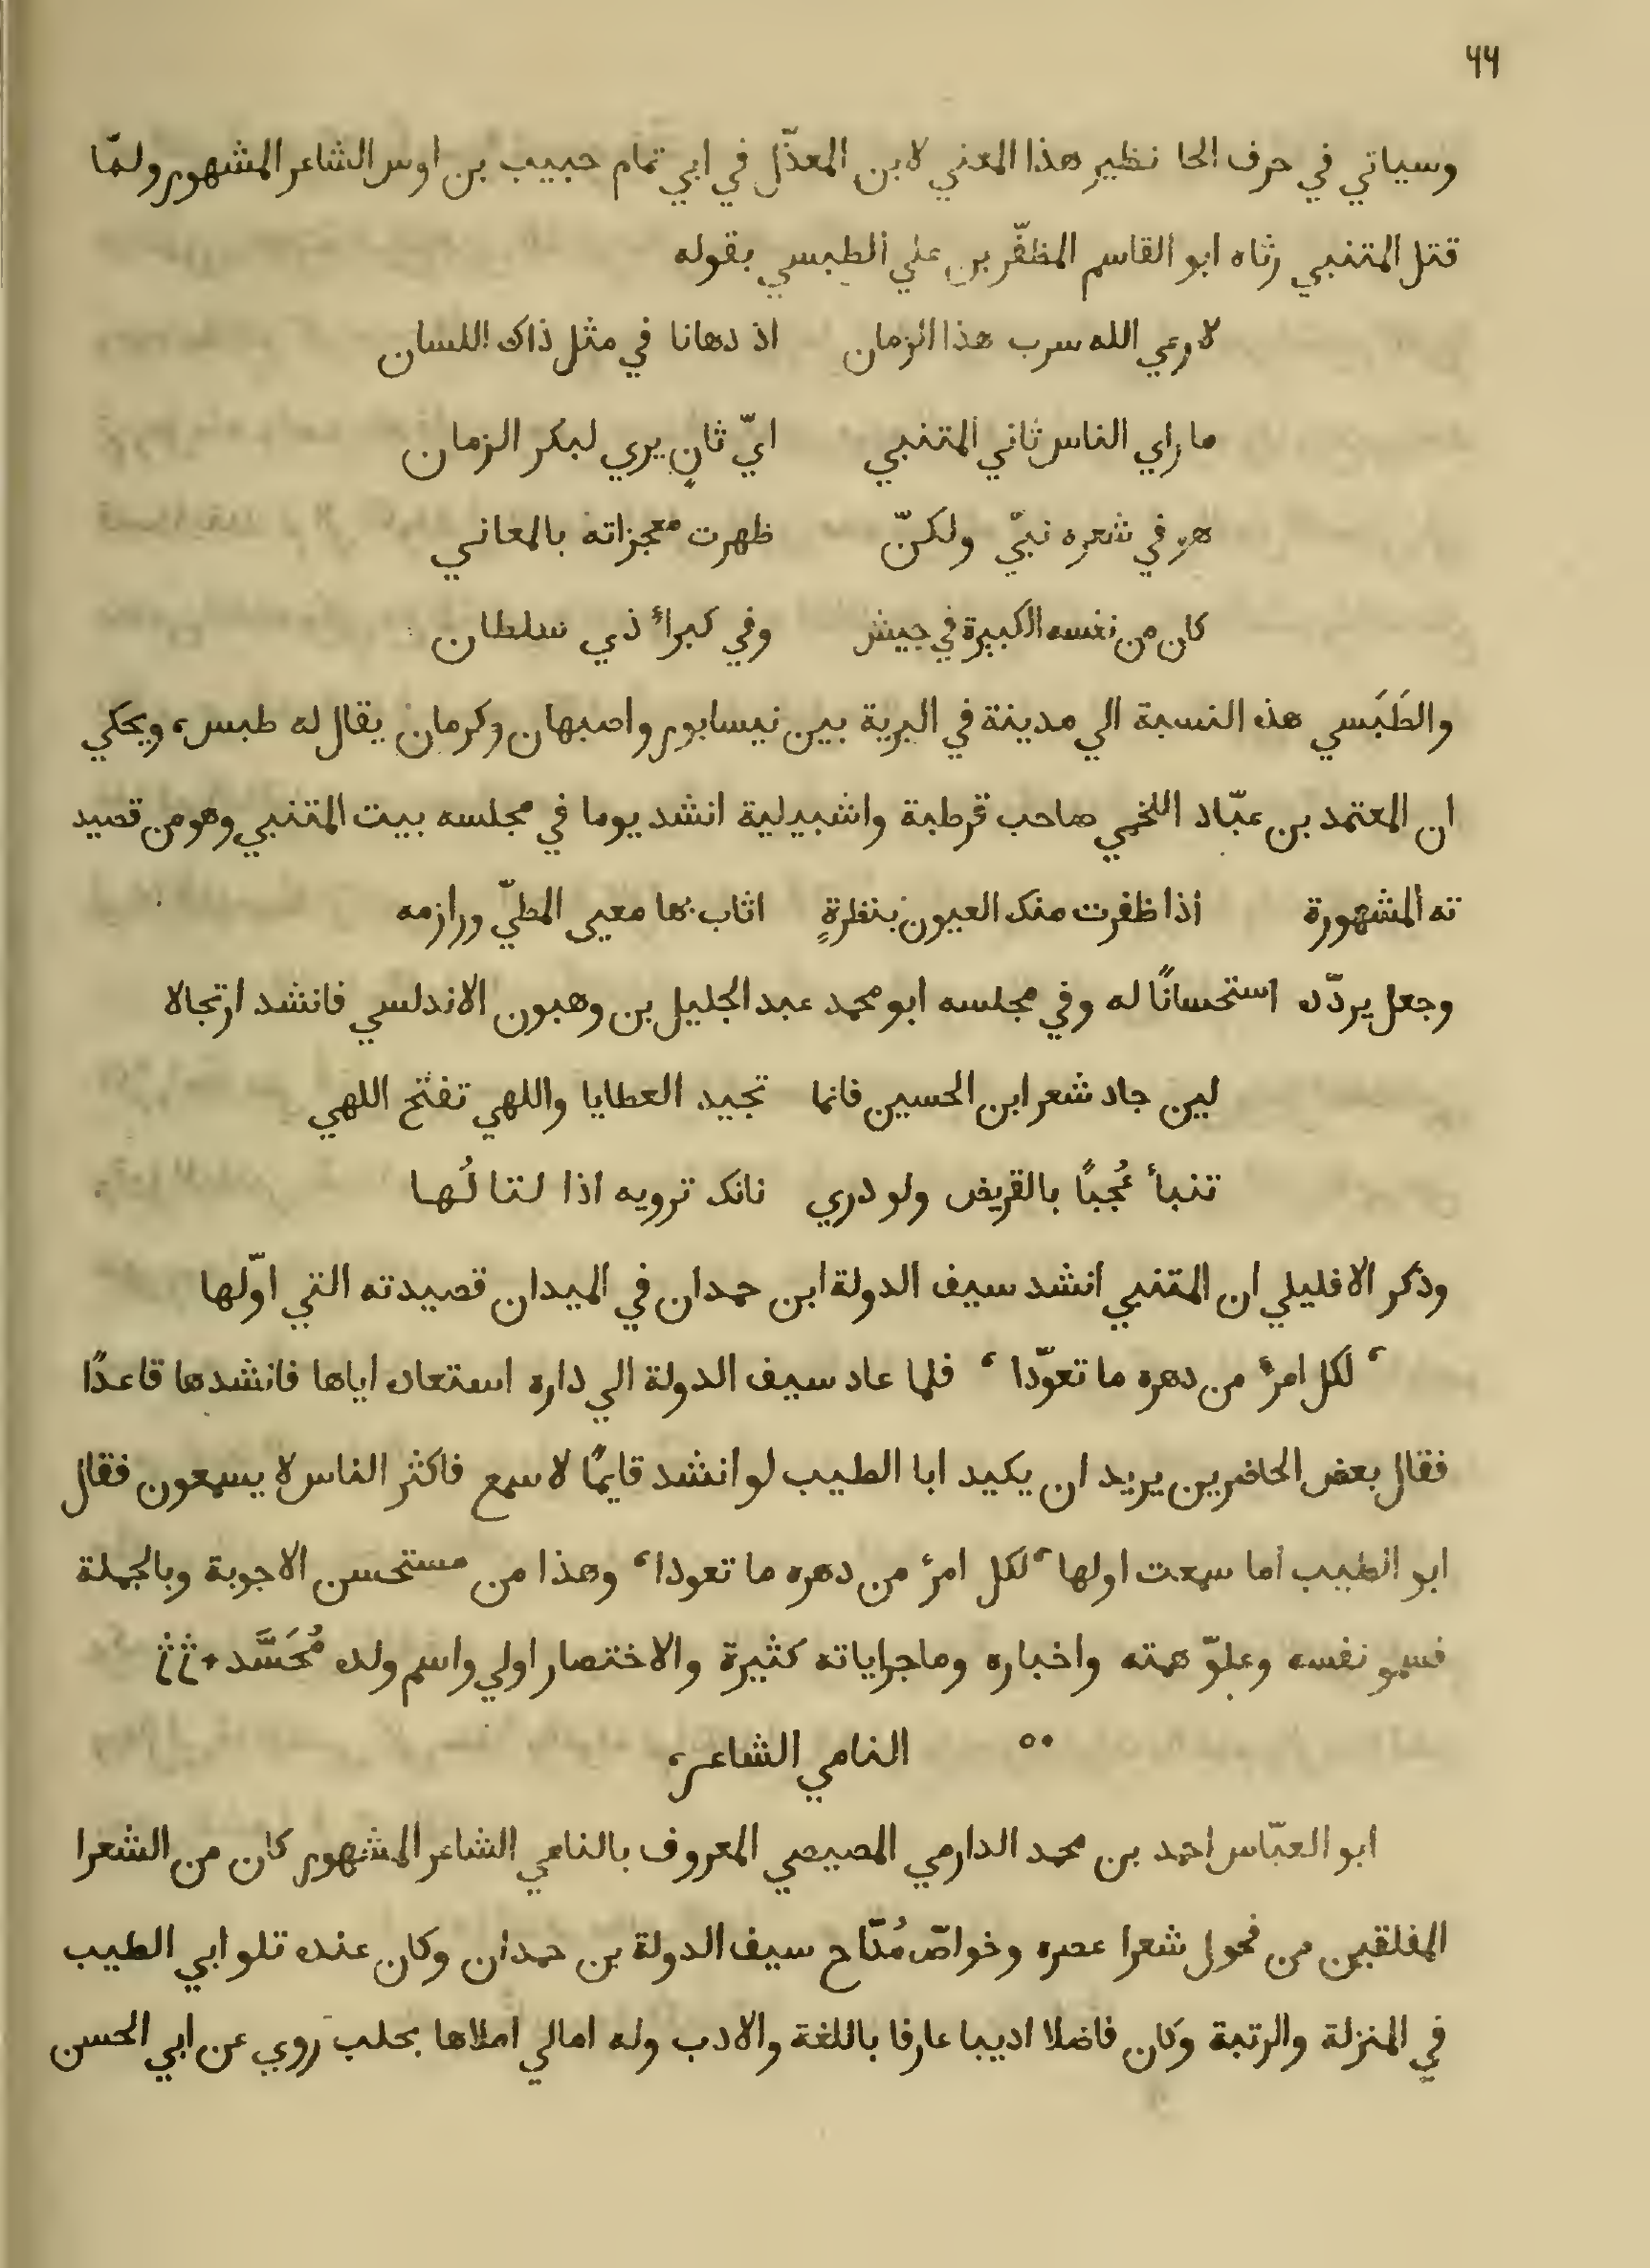 ٩٩
وسياتي في حرف الحا نظير هذا المعني لابن المعذّل في ابي تمام حبيب بن اوس الشاعر المشهور ولمّا
قتل المتنبي رثاه ابو القاسم المظفّر بن علي الطبسي بقوله
لا رعي الله سرب هذا الزمان اذ دهانا في مثل ذاك اللسان
ما راي الناس ثاني المتنبي ايّ ثانٍ يري لبكر الزمان
هو في شعره نبيّ ولكنّ ظهرت معجزاته بالمعاني
كان من نفسه الكبيرة في جيش وفي كبرأ ذي سلطان
والطَبَسي هذه النسبة الي مدينة في البرية بين نيسابور واصبهان وكرمان يقال له طبس، ويحكي
ان المعتمد بن عبّاد اللخمي صاحب قرطبة واشبيلية انشد يوما في مجلسه بيت المتنبي وهو من قصيد
ته المشهورة اذا ظفرت منك العيون بنظرةٍ اثاب بها معيى المطيّ ورازمه
وجعل يردّده استحسانًا له وفي مجلسه ابو محمد عبد الجليل بن وهبون الاندلسي فانشد ارتجالا
لين جاد شعر ابن الحسين فانما تجيد العطايا واللهي تفتح اللهي
تنبأ عُجبًا بالقريض ولو دري نانك ترويه اذا لتا لُها
وذكر الافليلي ان المتنبي انشد سيف الدولة ابن حمدان في الميدان قصيدته التي اوّلها
، لكل امرئ من دهره ما تعوّدا ، فلما عاد سيف الدولة الي داره استعاده اياها فانشدها قاعدًا
فقال بعض الحاضرين يريد ان يكيد ابا الطيب لو انشد قايمًا لاسمع فاكثر الناس لا يسمعون فقال
ابو الطيب اما سمعت اولها ،لكل امرئ من دهره ما تعودا، وهذا من مستحسن الاجوبة وبالجملة
فسمو نفسه وعلوّ همته واخباره وماجراياته كثيرة والاختصار اولي واسم ولده مُحَسَّد
٥٠ النامي الشاعر،
ابو العبّاس احمد بن محمد الدارمي المصيصي المعروف بالنامي الشاعر المشهور كان من الشعرا
المفلقين من فحول شعرا عصره وخواصّ مُدّاح سيف الدولة بن حمدان وكان عنده تلو ابي الطيب
في المنزلة والرتبة وكان فاضلا اديبا عارفا باللغة والادب وله امالي املاها بحلب روي عن ابي الحسن